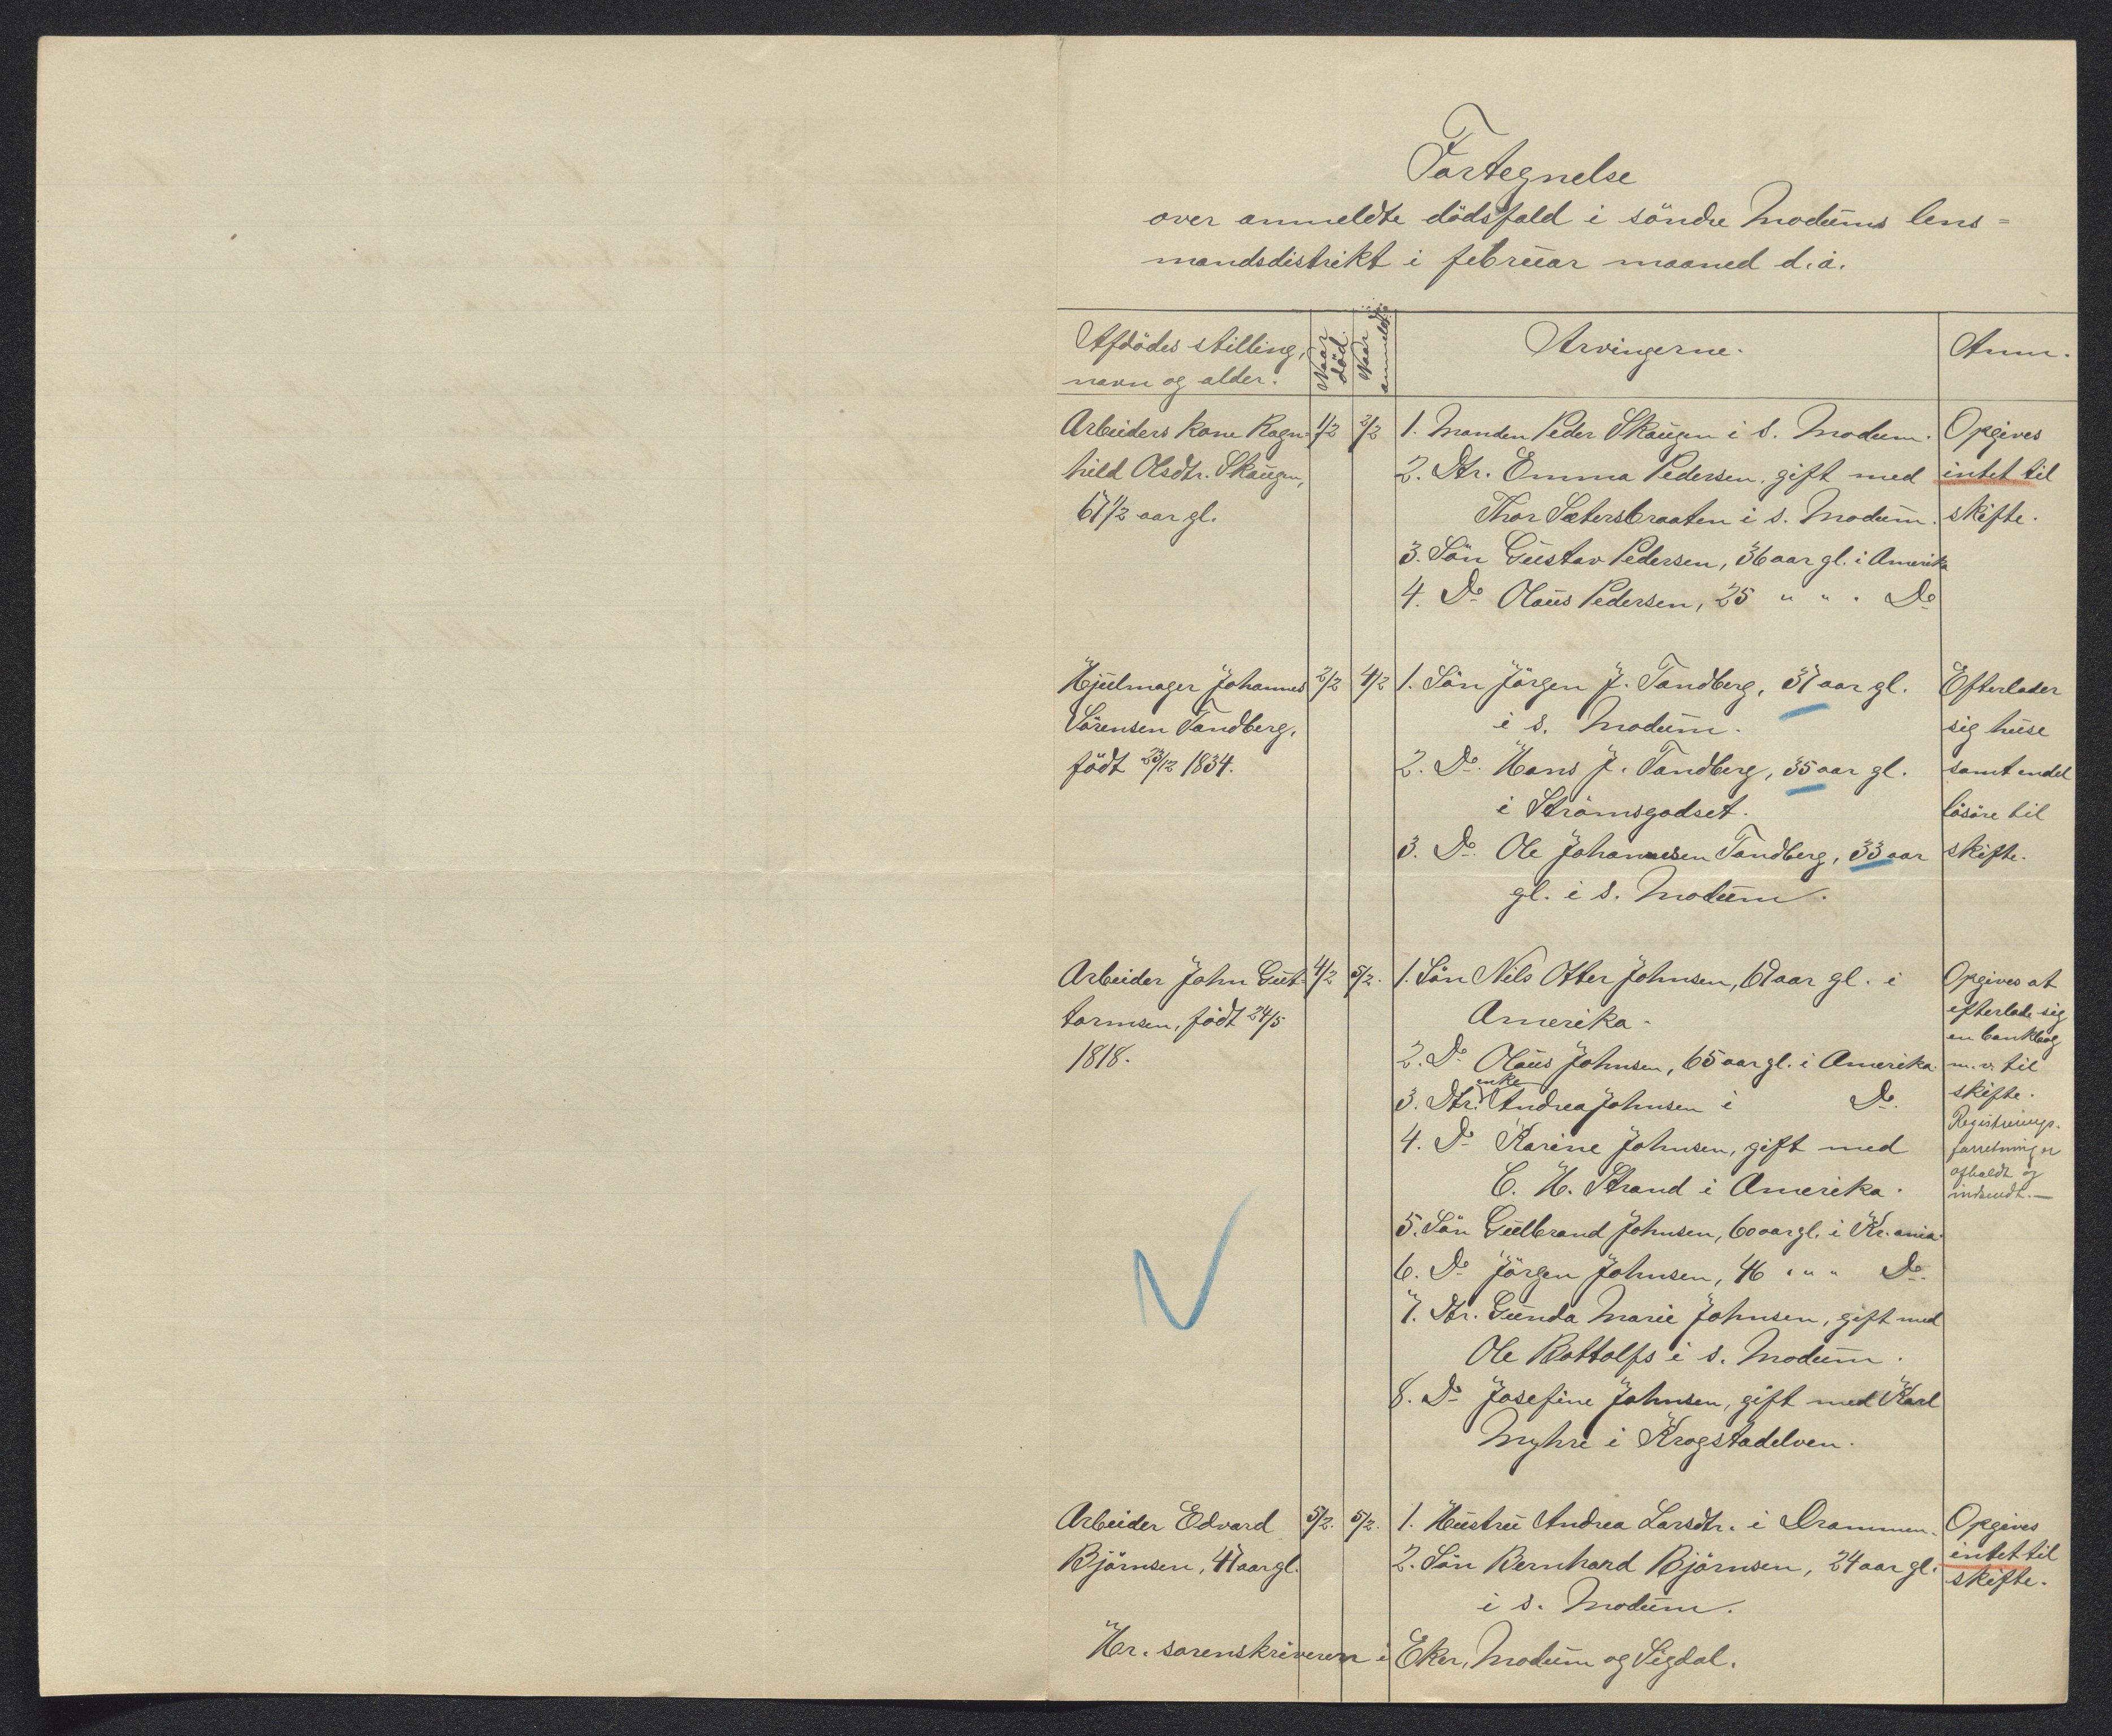 Fortegnelse
over anmeldte dödsfald i söndre Modums lens=
mandsdistrikt i februar maaned d. å.
Afdödes stilling, navn og alder.
Naar död.
Naar anmeldt.
Arvingerne.
Anm.
Arbeiders kone Ragn= 1/2 2/2 1. Manden Peder Skaugen i s. Modum. Opgives
hild Olsdtr. Skaugen, 2. Dtr. Emma Pedersen, gift med intet til
67 1/2 aar gl. Thor Sætersbraaten i s. Modum. skifte.
3. Sön Gustav Pedersen, 36 aar gl. i Amerika
4. Do Olaus Pedersen, 25 " " " Do
Hjulmager Johannes 2/2 4/2 1. Sön Jörgen J. Tandberg, 37 aar gl. Efterlader
Sörensen Tandberg, i s. Modum. sig huse
födt 23/12 1834. 2. Do. Hans J. Tandberg, 35 aar gl. samt endel
i Strömsgodset. lösöre til
3. Do. Ole Johannesen Tandberg, 33 aar skifte.
gl. i s. Modum.
Arbeider John Gut= 4/2 5/2. 1. Sön Nils Otter Johnsen, aar gl. i Opgives at
tormsen, födt 24/5 Amerika. efterlade sig
1818. en bankbog
2. Do Olaus Johnsen, 65 aar gl. i Amerika. m. v. til
enke
3. Dtr. Andrea Johnsen i Do. skifte.
Registrerings-
4. Do Karine Johnsen, gift med forretning er
C. H. Strand i Amerika. afholdt og
indsendt.—
5. Sön Gulbrand Johnsen, 60 aar gl. i Kr.ania.
6. Do Jörgen Johnsen, 46 " " " Do.
7. Dtr. Gunda Marie Johnsen, gift med
Ole Bottolfs i s. Modum.
8. Do Josefine Johnsen, gift med Karl
Myhre i Krogstadelven.
Arbeider Edvard 5/2. 5/2. 1. Hustru Andrea Larsdtr. i Drammen. Opgives
Björnsen, 47 aar gl. 2. Sön Bernhard Björnsen, 24 aar gl. intet til
i s. Modum. skifte.
Hr. sorenskriveren i Eker, Modum og Sigdal.